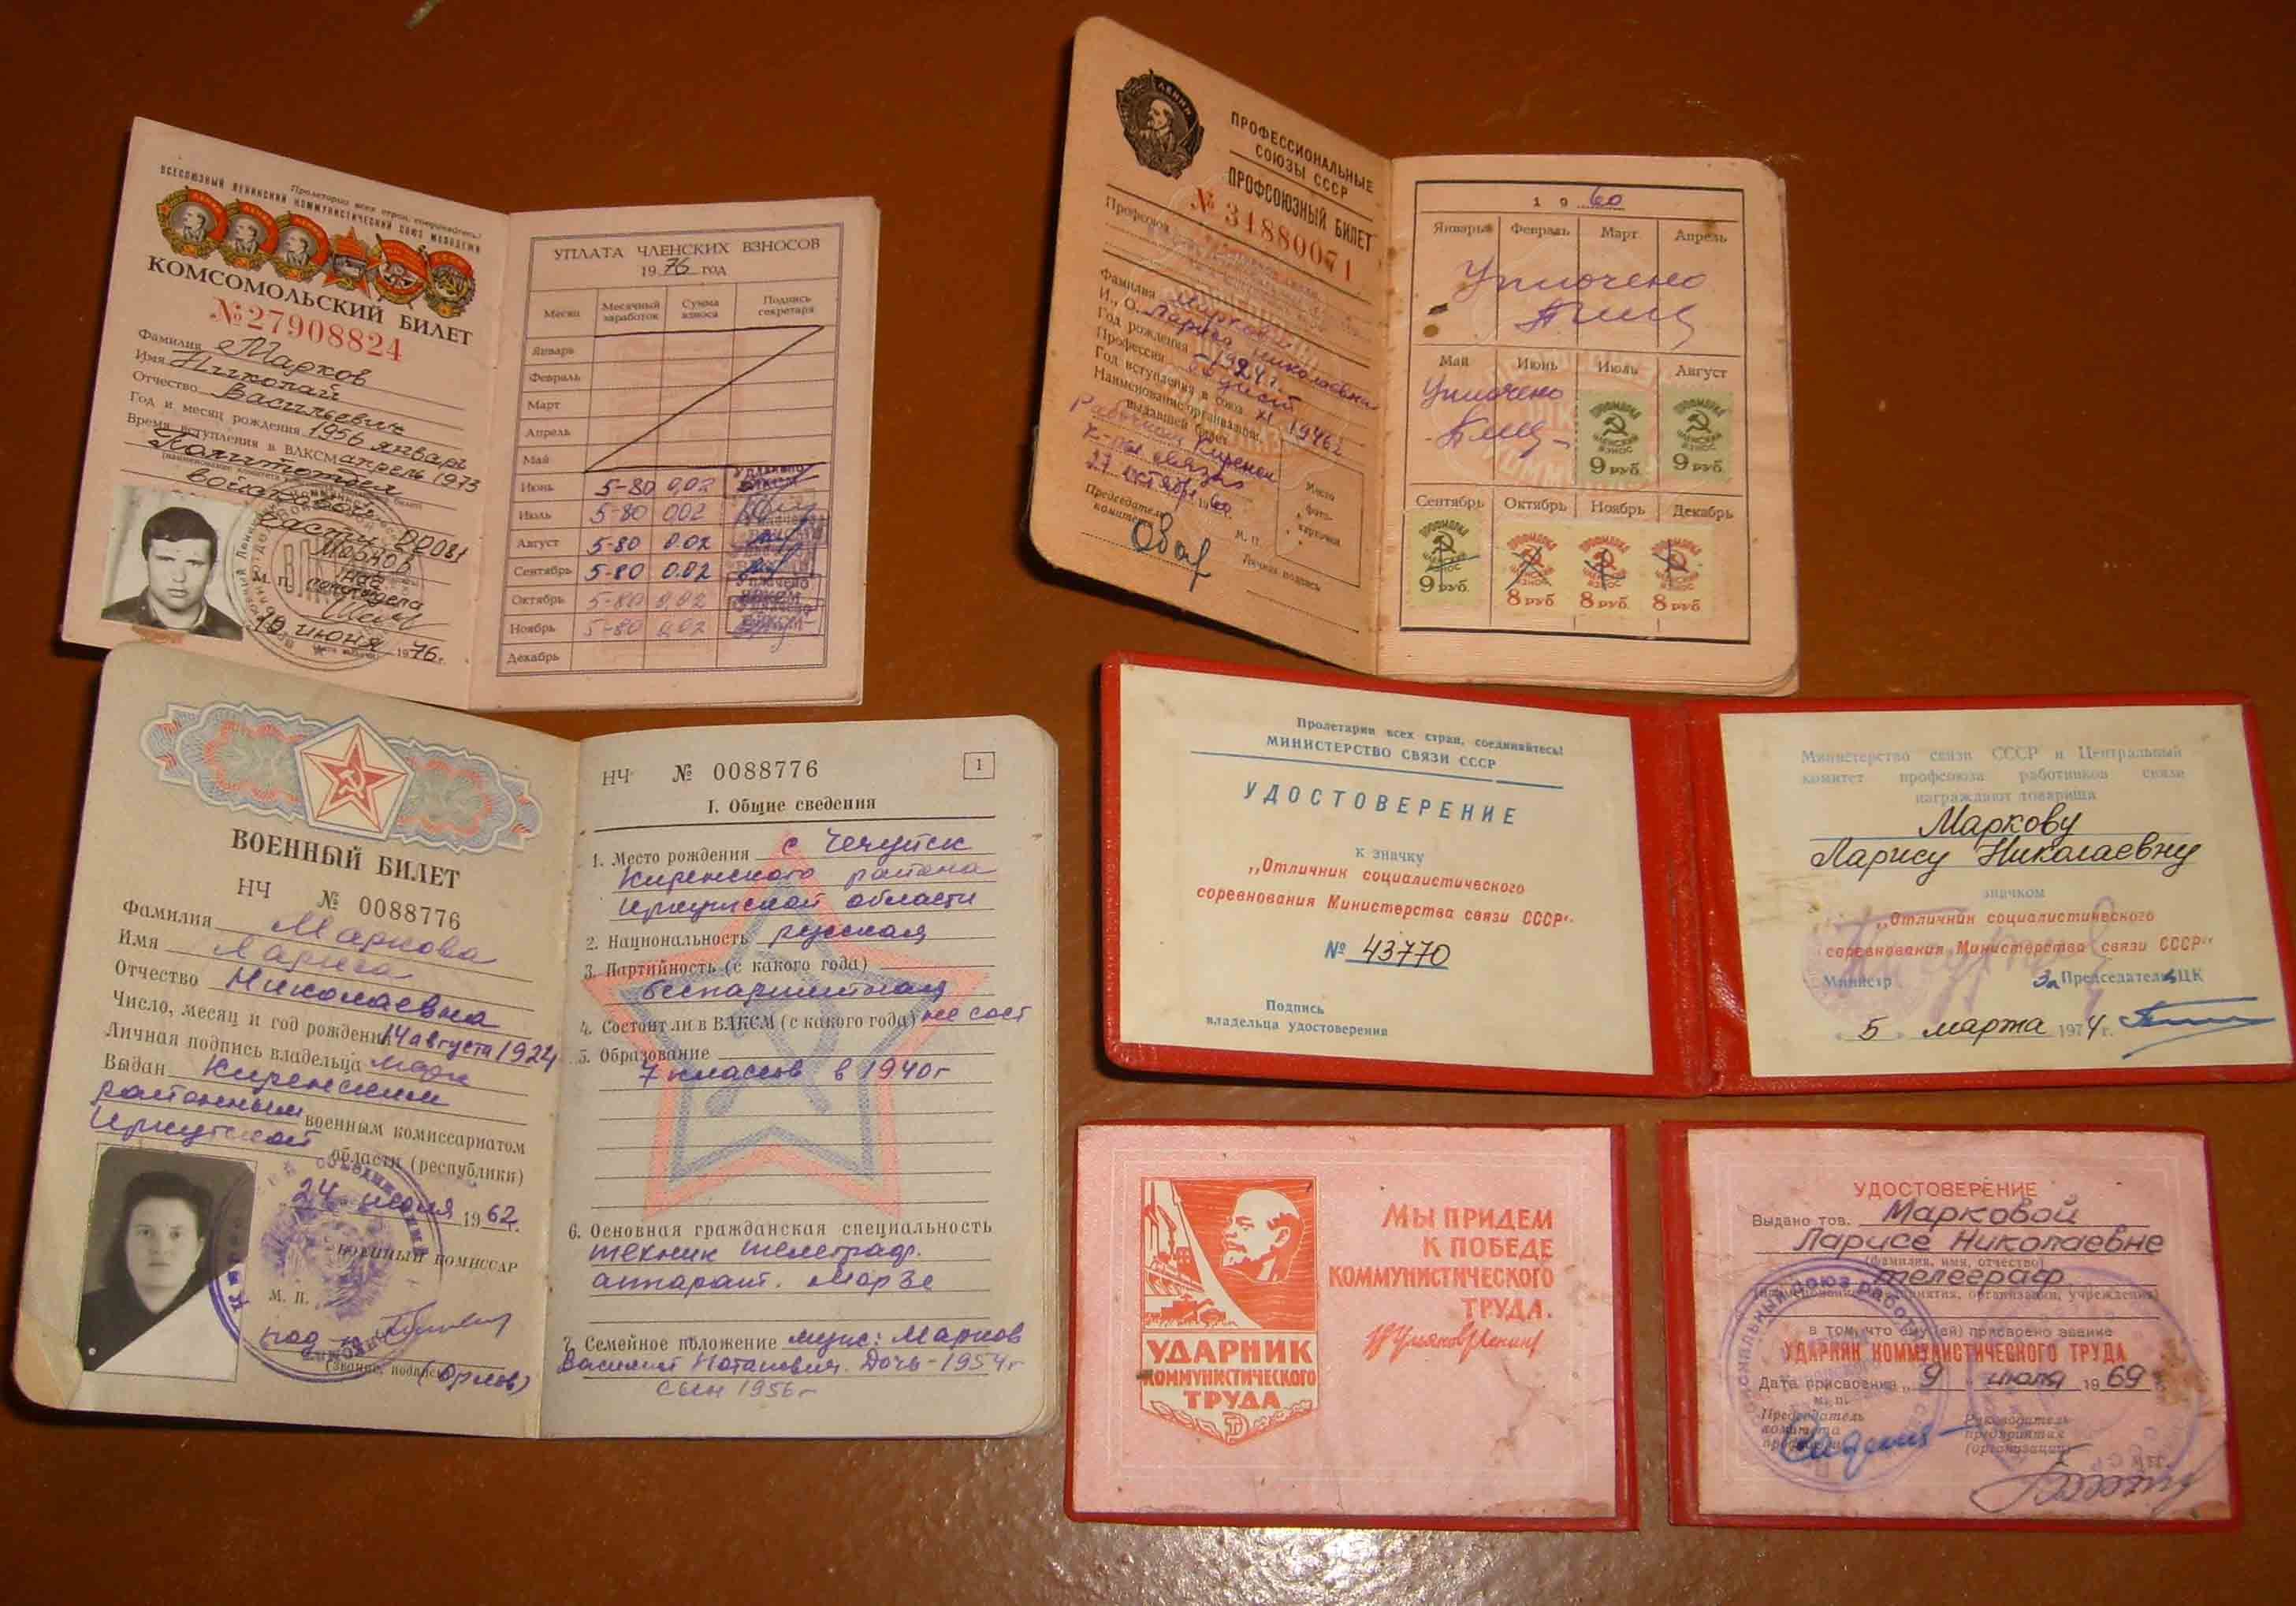 Пролетарии всех стран, соединяйтесь!
ВСЕСОЮЗНЫЙ ЛЕНИНСКИЙ КОММУНИСТИЧЕСКИЙ СОЮЗ МОЛОДЕЖИ
КОМСОМОЛЬСКИЙ БИЛЕТ
№ 2790 8824
Фамилия Марков
Имя Николай
Отчество Васильевич
Год и месяц рождения 1956 январь
Время вступления в ВЛКСМ апрель 1973
Политотдел
войсковой
части 00081
М. П. политотдела
10 июня 1976 г.
УПЛАТА ЧЛЕНСКИХ ВЗНОСОВ
1976 год
Месяц Месячный заработок Сумма взноса Подпись секретаря
Январь
Февраль
Март
Апрель
Май
Июнь 5-80 0,02
Июль 5-80 0,02
Август 5-80 0.02
Сентябрь 5-80 0.02
Октябрь 5-80 0,02
Ноябрь 5-80 0,02
Декабрь
ЛЕНИН
ПРОФЕССИОНАЛЬНЫЕ
СОЮЗЫ СССР
ПРОФСОЮЗНЫЙ БИЛЕТ
№ 31880071
Профсоюз
Фамилия Маркова
И., О. Лариса Николаевна
Год рождения 1924 г.
Профессия
Год вступления в союз XI 1946 г
Наименование организации,
выдавшей билет
Рабочком Киренск
к-ры связи
27 октября 1960 г.
Председатель
комитета
М. П.
Место
фото-
карточки
Личная подпись
1960
Январь Февраль Март Апрель
Уплочено
Май Июнь Июль Август
Уплочено
ПРОФМАРКА ЧЛЕНСКИЙ ВЗНОС 9 руб. ПРОФМАРКА ЧЛЕНСКИЙ ВЗНОС 9 руб.
Сентябрь Октябрь Ноябрь Декабрь
ПРОФМАРКА ЧЛЕНСКИЙ ВЗНОС 9 руб. ПРОФМАРКА ЧЛЕНСКИЙ ВЗНОС 8 руб. ПРОФМАРКА ЧЛЕНСКИЙ ВЗНОС 8 руб. ПРОФМАРКА ЧЛЕНСКИЙ ВЗНОС 8 руб
ВОЕННЫЙ БИЛЕТ
НЧ № 0088776
Фамилия Маркова
Имя Лариса
Отчество Николаевна
Число, месяц и год рождения 14 августа 1924
Личная подпись владельца Марк
Выдан Киренским
районным военным комиссариатом
Иркутской области (республики)
24 июня 1962 г.
ВОЕННЫЙ КОМИССАР
М. П.
(звание, подпись) (Орлов)
НЧ № 0088776
1
I. Общие сведения
1. Место рождения с Чечуйск
Киренского района
Иркутской области
2. Национальность русская
3. Партийность (с какого года)
беспартийная
4. Состоит ли в ВЛКСМ (с какого года) не сост
5. Образование
7 классов в 1940 г
6. Основная гражданская специальность
техник телеграф.
аппарат. Морзе
7. Семейное положение муж: Марков
Василий Потапович. Дочь - 1954 г
сын 1956 г
Пролетарии всех стран, соединяйтесь!
МИНИСТЕРСТВО СВЯЗИ СССР
УДОСТОВЕРЕНИЕ
к значку
„Отличник социалистического
соревнования Министерства связи СССР“
№ 43770
Подпись
владельца удостоверения
Министерство связи СССР и Центральный
комитет профсоюза работников связи
награждают товарища
Маркову
Ларису Николаевну
значком
„Отличник социалистического
соревнования Министерства связи СССР“
Министр За Председатель ЦК
„5 марта 1974 г.
УДАРНИК
КОММУНИСТИЧЕСКОГО
ТРУДА
МЫ ПРИДЕМ
К ПОБЕДЕ
КОММУНИСТИЧЕСКОГО
ТРУДА.
В Ульянов (Ленин)
УДОСТОВЕРЕНИЕ
Выдано тов. Марковой
Ларисе Николаевне
(фамилия, имя, отчество)
телеграф
(наименование предприятия, организации, учреждения)
в том, что ему (ей) присвоено звание
УДАРНИК КОММУНИСТИЧЕСКОГО ТРУДА
Дата присвоения „9 июля 1969
М. П.
Председатель
комитета
Руководитель
предприятия
(организации)